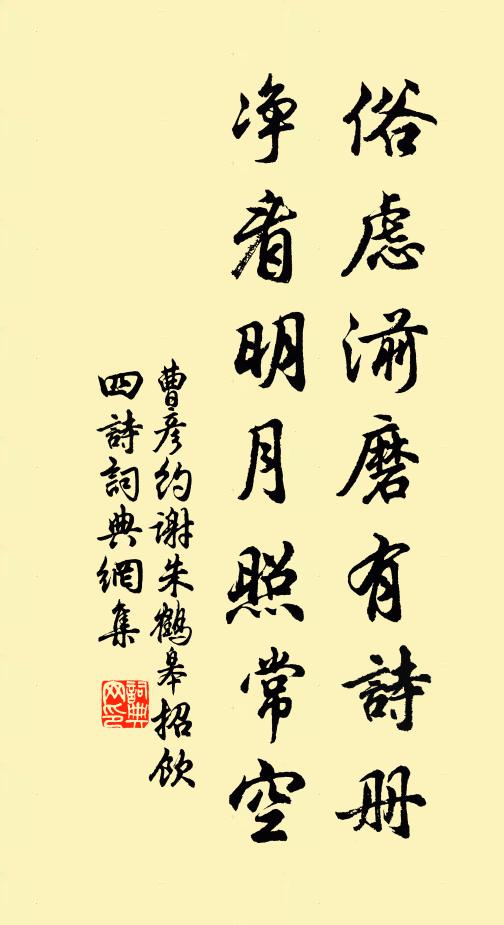 俗慮湔磨有詩册
净看明月照常空
曹彦約谢朱鶴皋招飲
四詩詞典網集
詞典
网印